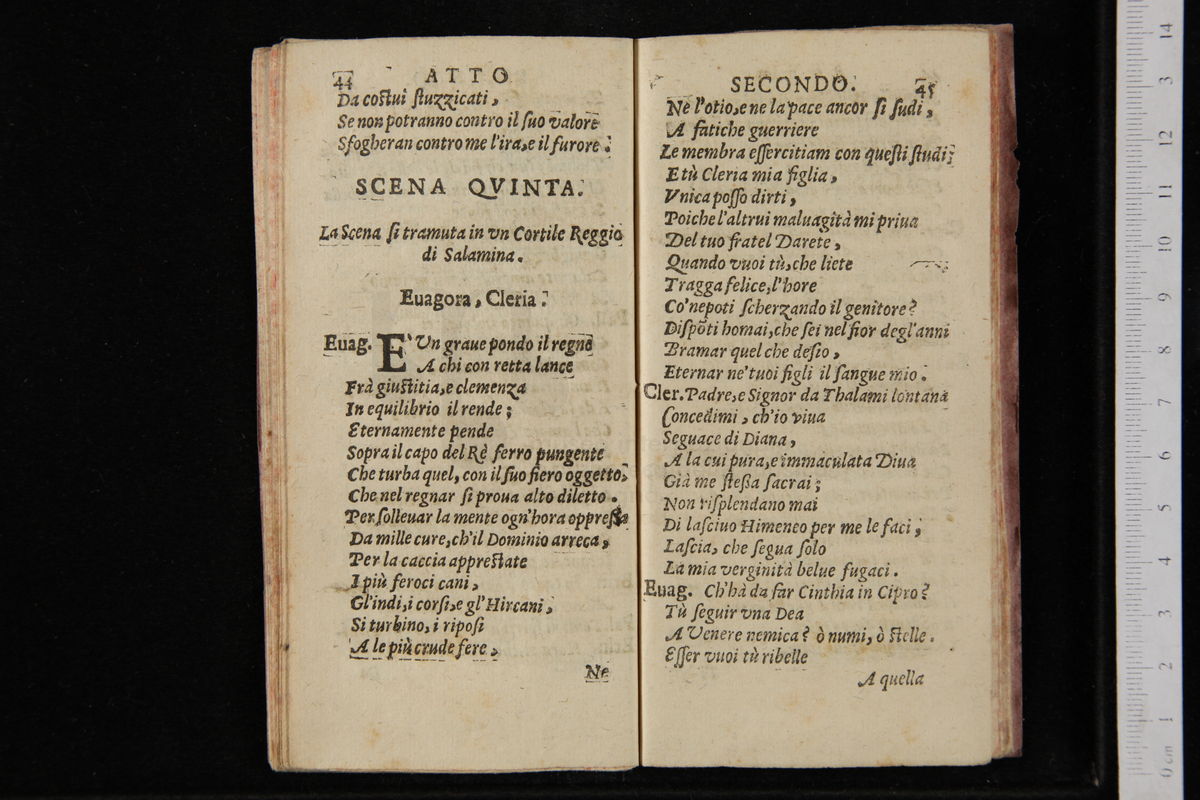 44 ATTO
Da costui stuzzicati,
Se non potranno contro il suo valore
Sfogheran contro me l'ira, e il furore.
SCENA QVINTA.
La Scena si tramuta in vn Cortile Reggio
di Salamina.
Euagora, Cleria.
Euag. E' Vn graue pondo il regno
A chi con retta lance
Frà giustitia, e clemenza
In equilibrio il rende;
Eternamente pende
Sopra il capo del Rè ferro pungente
Che turba quel, con il suo fiero oggetto,
Che nel regnar si proua alto diletto.
Per solleuar la mente ogn'hora oppressa
Da mille cure, ch'il Dominio arreca,
Per la caccia apprestate
I più feroci cani,
Gl'indi, i corsi, e gl'Hircani,
Si turbino, i riposi
A le più crude fere,
Ne
SECONDO. 45
Ne l'otio, e ne la pace ancor si sudi,
A fatiche guerriere
Le membra essercitiam con questi studi;
E tù Cleria mia figlia,
Vnica posso dirti,
Poiche l'altrui maluagità mi priua
Del tuo fratel Darete,
Quando vuoi tù, che liete
Tragga felice, l'hore
Co'nepoti scherzando il genitore?
Dispōti homai, che sei nel fior degl'anni
Bramar quel che desio,
Eternar ne'tuoi figli il sangue mio.
Cler. Padre, e Signor da Thalami lontana
Concedimi, ch'io viua
Seguace di Diana,
A la cui pura, e immaculata Diua
Già me stessa sacrai;
Non risplendano mai
Di lasciuo Himeneo per me le faci,
Lascia, che segua solo
La mia verginità belue fugaci.
Euag. Ch'hà da far Cinthia in Cipro?
Tù seguir vna Dea
A Venere nemica? ò numi, ò stelle.
Esser vuoi tù ribelle
A quella
14
3
12
11
10
9
8
7
6
5
4
3
2
1
0 cm